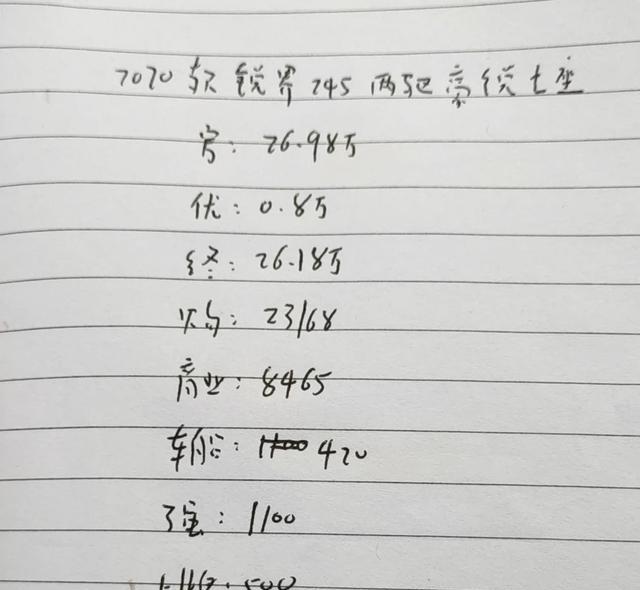 2020款 锐界 245 两驱豪锐七座
官: 26.98万
优: 0.8万
终: 26.18万
购: 23168
商业: 8465
车船: 420
强: 1100
500